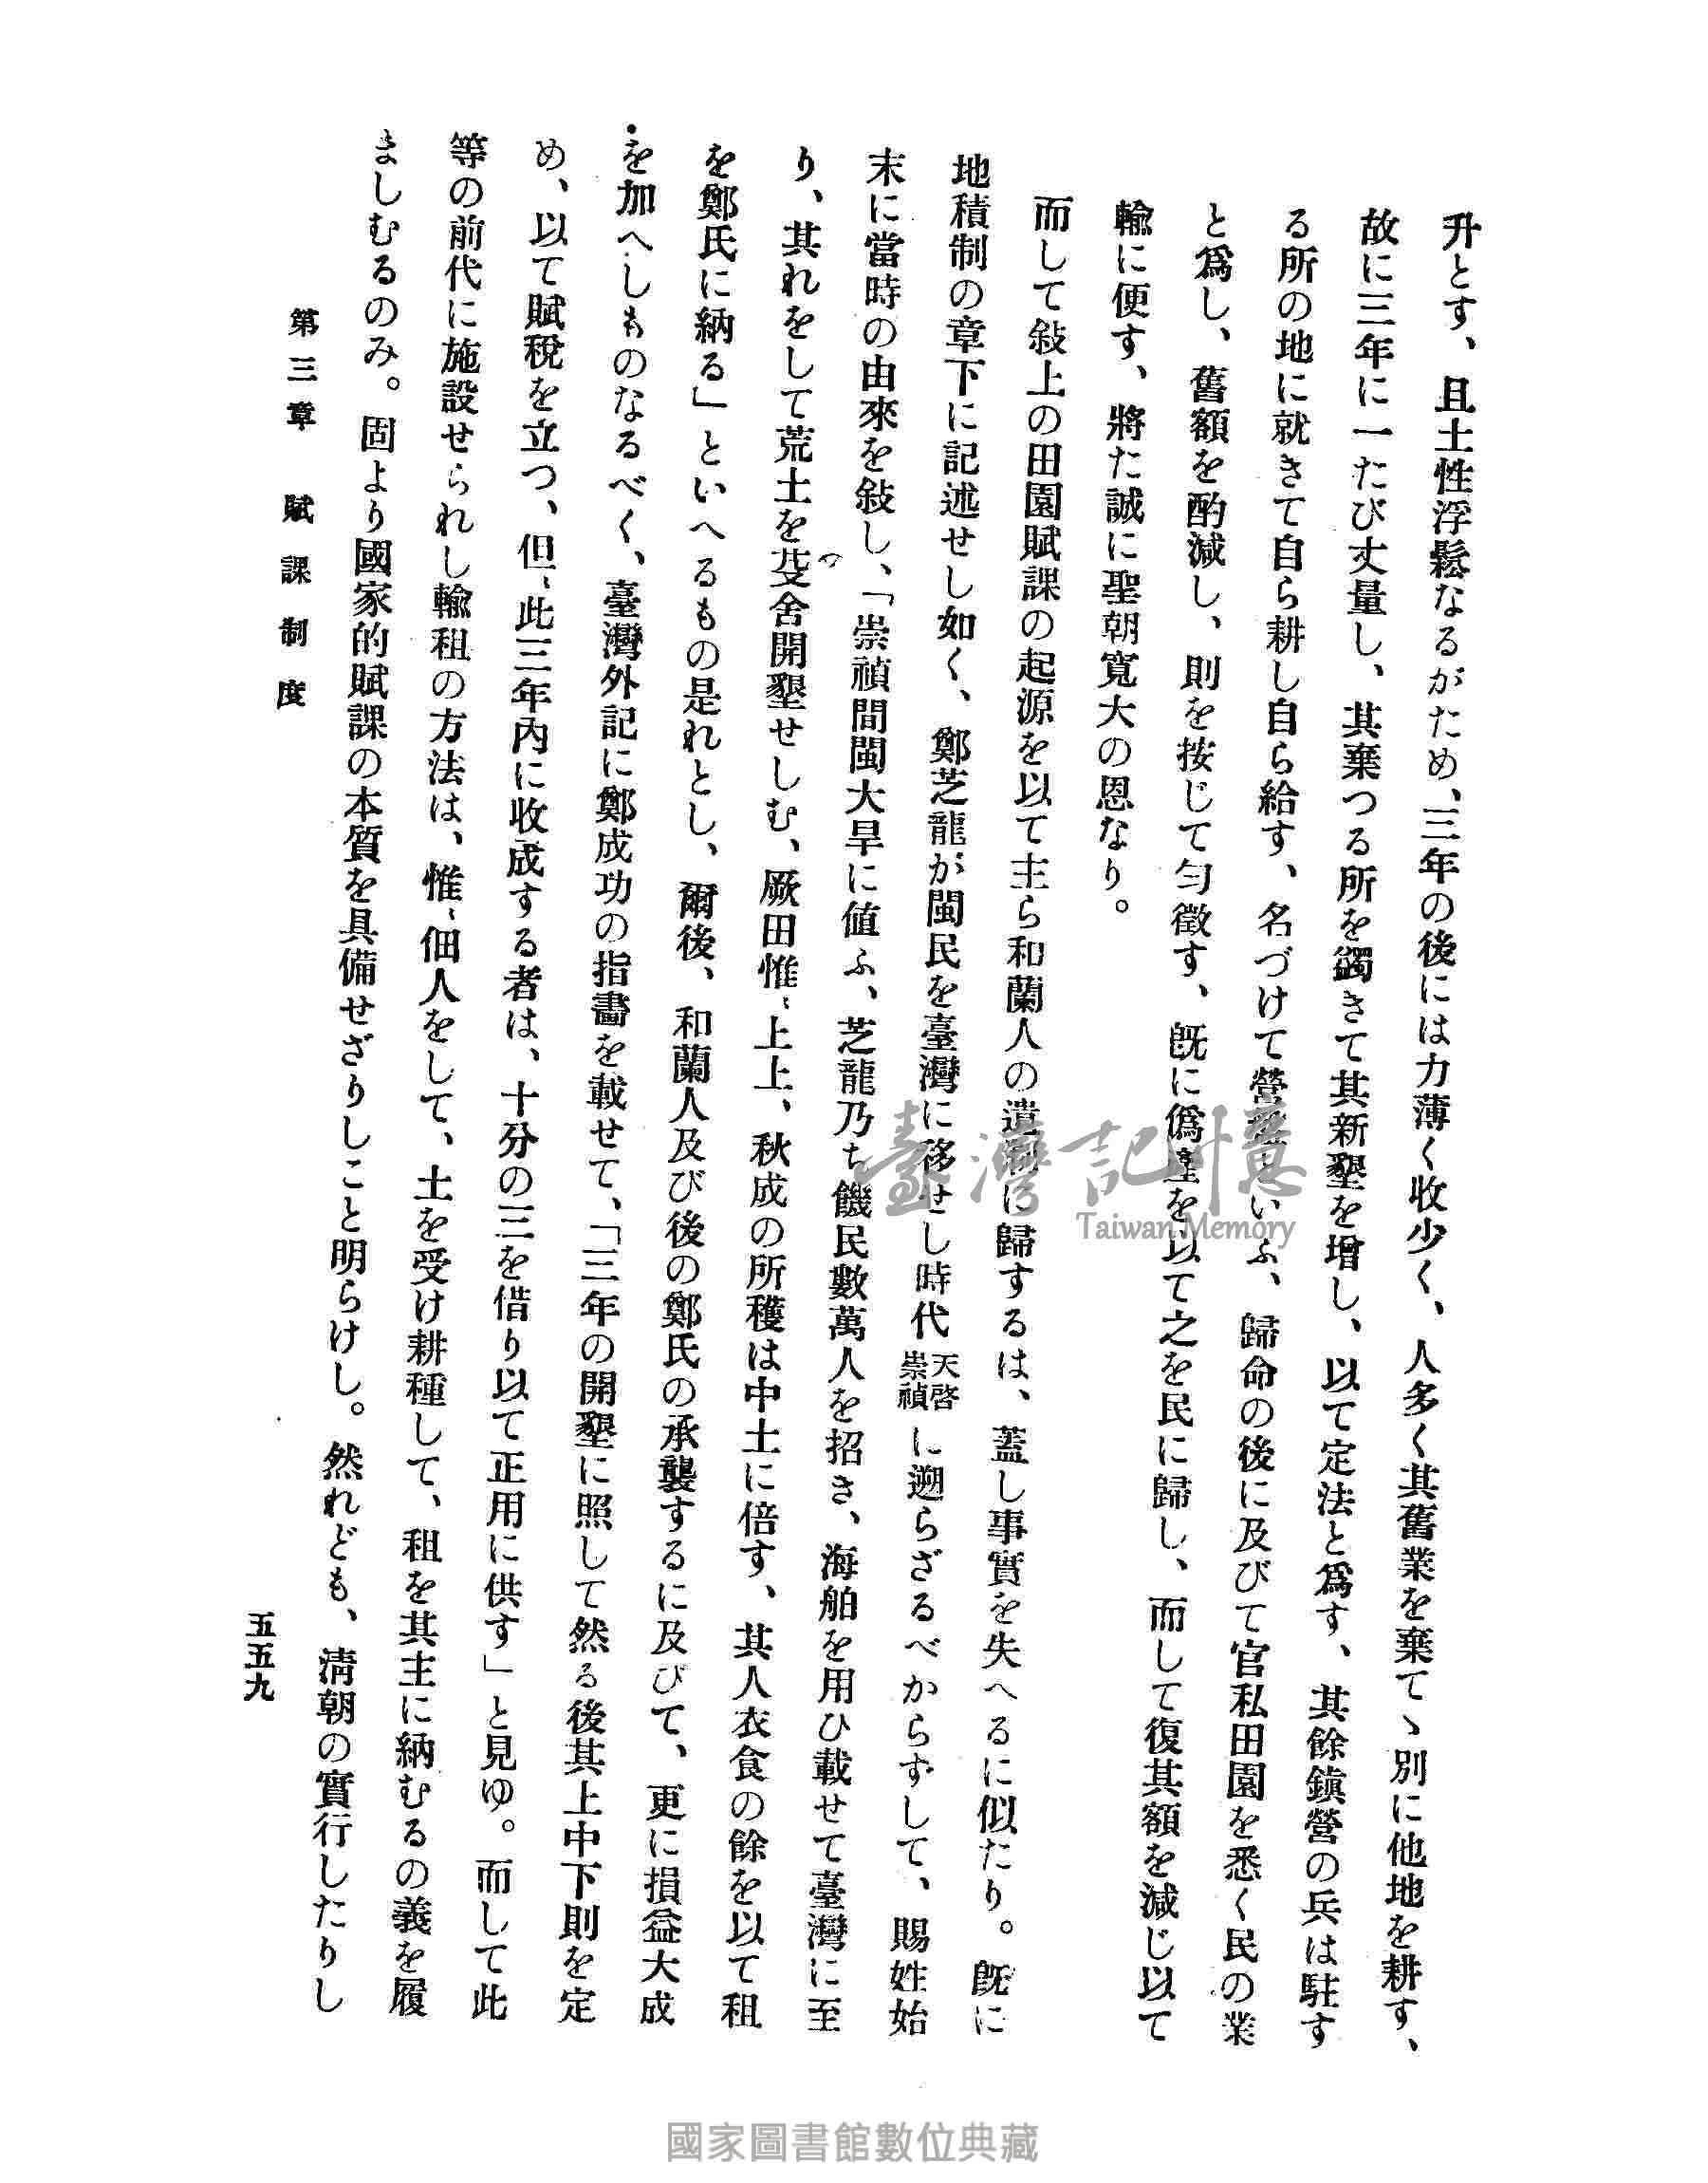 升とす、且土性浮鬆なるがため、三年の後には力薄く收少く、人多く其舊業を棄てゝ別に他地を耕す、
故に三年に一たび丈量し、其棄つる所を蠲きて其新墾を增し、以て定法と爲す、其餘鎭營の兵は駐す
る所の地に就きて自ら耕し自ら給す、名づけて營盤といふ、歸命の後に及びて官私田園を悉く民の業
と爲し、舊額を酌減し、則を按じて匀徵す、旣に僞產を以て之を民に歸し、而して復其額を減じ以て
輸に便す、將た誠に聖朝寬大の恩なり。
而して敍上の田園賦課の起源を以て主ら和蘭人の遺制に歸するは、蓋し事實を失へるに似たり。旣に
地積制の章下に記述せし如く、鄭芝龍が閩民を臺灣に移せし時代天啓崇禎に遡らざるべからずして、賜姓始
末に當時の由來を敍し、「崇禎間閩大旱に値ふ、芝龍乃ち饑民數萬人を招き、海舶を用ひ載せて臺灣に至
り、其れをして荒土を芟舍開墾せしむ、厥田惟、上上、秋成の所穫は中土に倍す、其人衣食の餘を以て租
を鄭氏に納る」といへるもの是れとし、爾後、和蘭人及び後の鄭氏の承襲するに及びて、更に損益大成
を加へしものなるべく、臺灣外記に鄭成功の指畵を載せて、「三年の開墾に照して然る後其上中下則を定
め、以て賦稅を立つ、但、此三年內に收成する者は、十分の三を借り以て正用に供す」と見ゆ。而して此
等の前代に施設せられし輸租の方法は、惟、佃人をして、土を受け耕種して、租を其主に納むるの義を履
ましむるのみ。固より國家的賦課の本質を具備せざりしこと明らけし。然れども、淸朝の實行したりし
第三章 賦課制度
五五九
臺灣記憶
Taiwan Memory
國家圖書館數位典藏